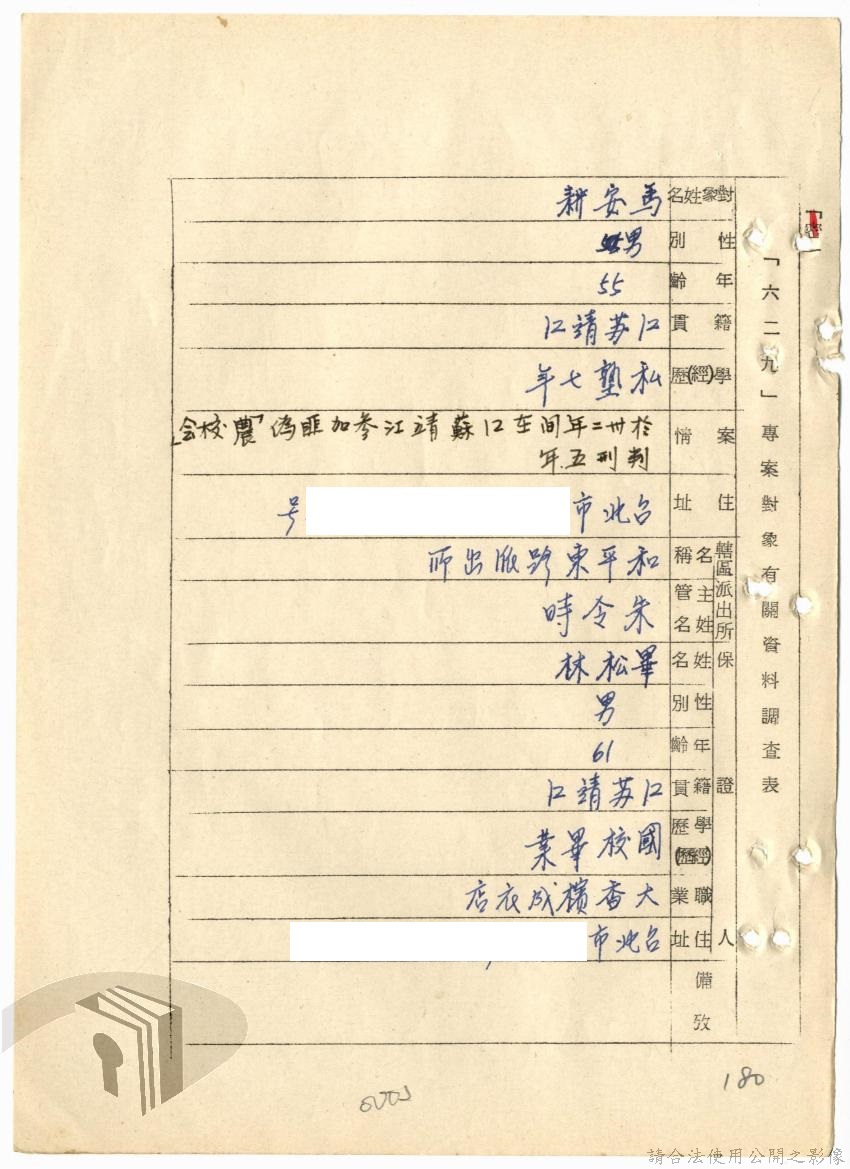 「密」
「六二九」專案對象有關資料調查表
對象姓名 馬安耕
性別 男
年齡 55
籍貫 江苏靖江
學(經)歷 私塾七年
案情 於卅二年间在江蘇靖江参加匪偽「農校会」
判刑五年
住址 台北市 号
轄區派出所 名稱 和平東路派出所
主管姓名 朱令時
保證人 姓名 畢松林
性別 男
年齡 61
籍貫 江苏靖江
學歷(經歷) 國校畢業
職業 大香檳成衣店
住址 台北市
備攷
180
請合法使用公開之影像